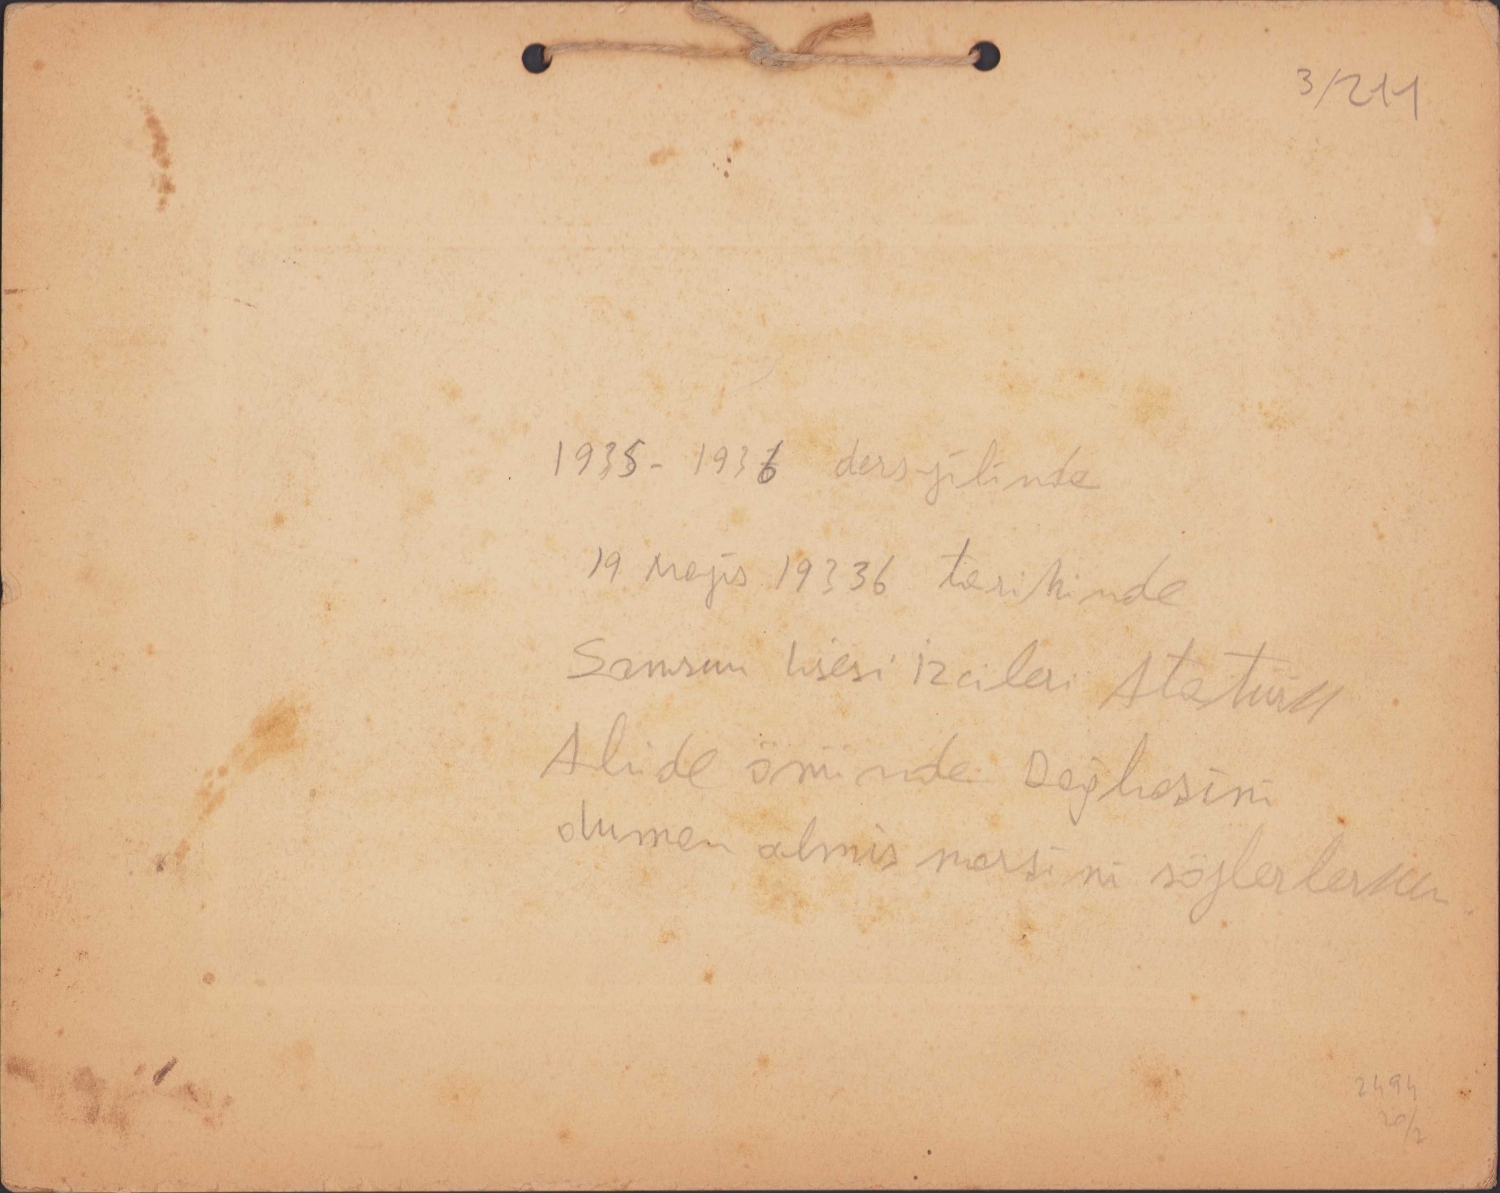 3/211
1935- 1936 ders yılinde
19 Mayıs 19336 tarihinde
Samsun lisesi izcileri Atatürk
Abide önünde Dağbaşını
duman almış marşını söylerlerken.
2494
20/2